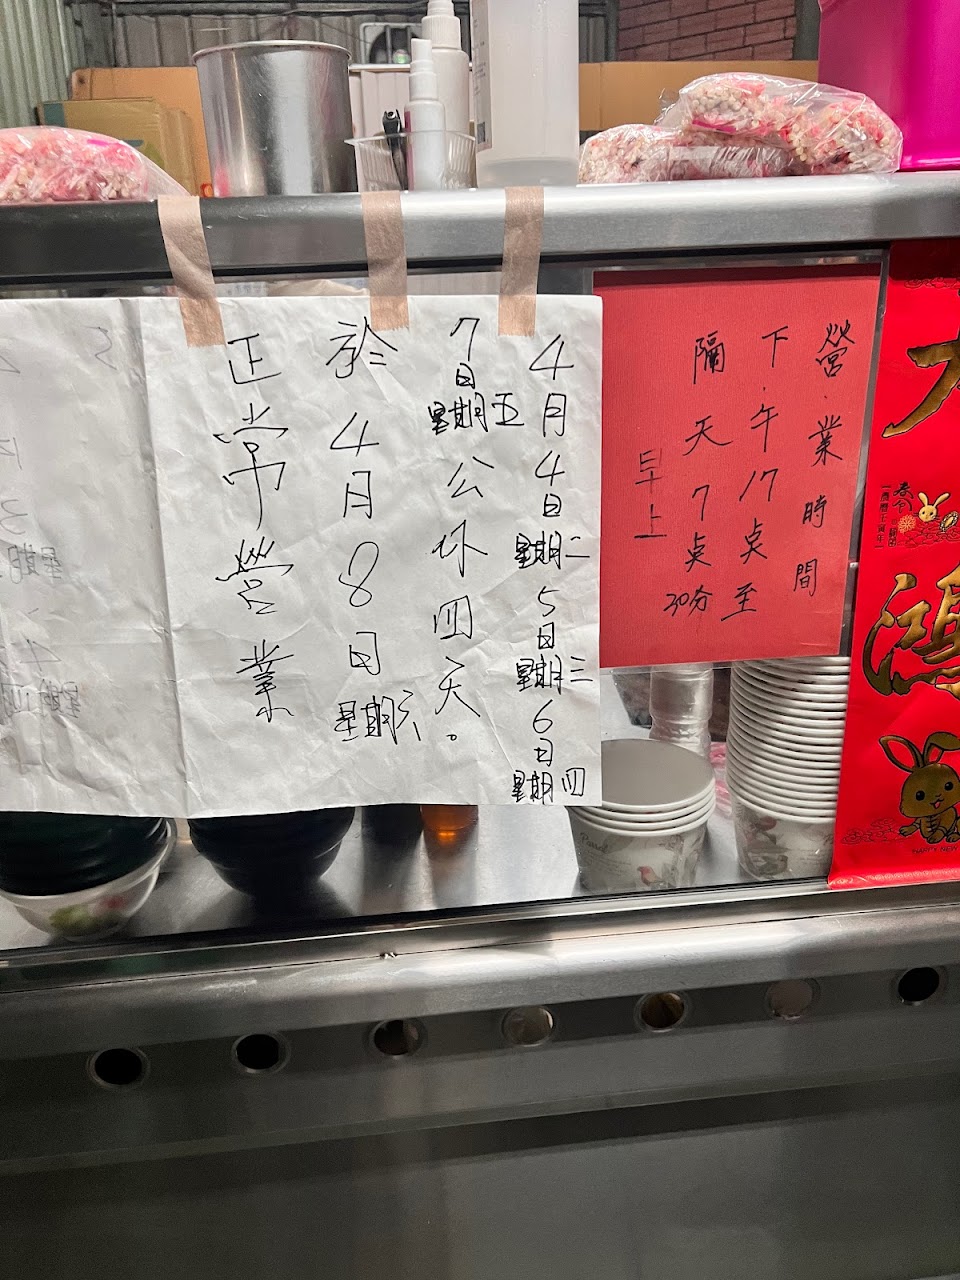 營業時間
下午17桌至
隔天7桌30分
早上
4月4日星期二5日星期三6日星期四
7日星期五公休四天。
於4月8日星期六
正常營業
鴻